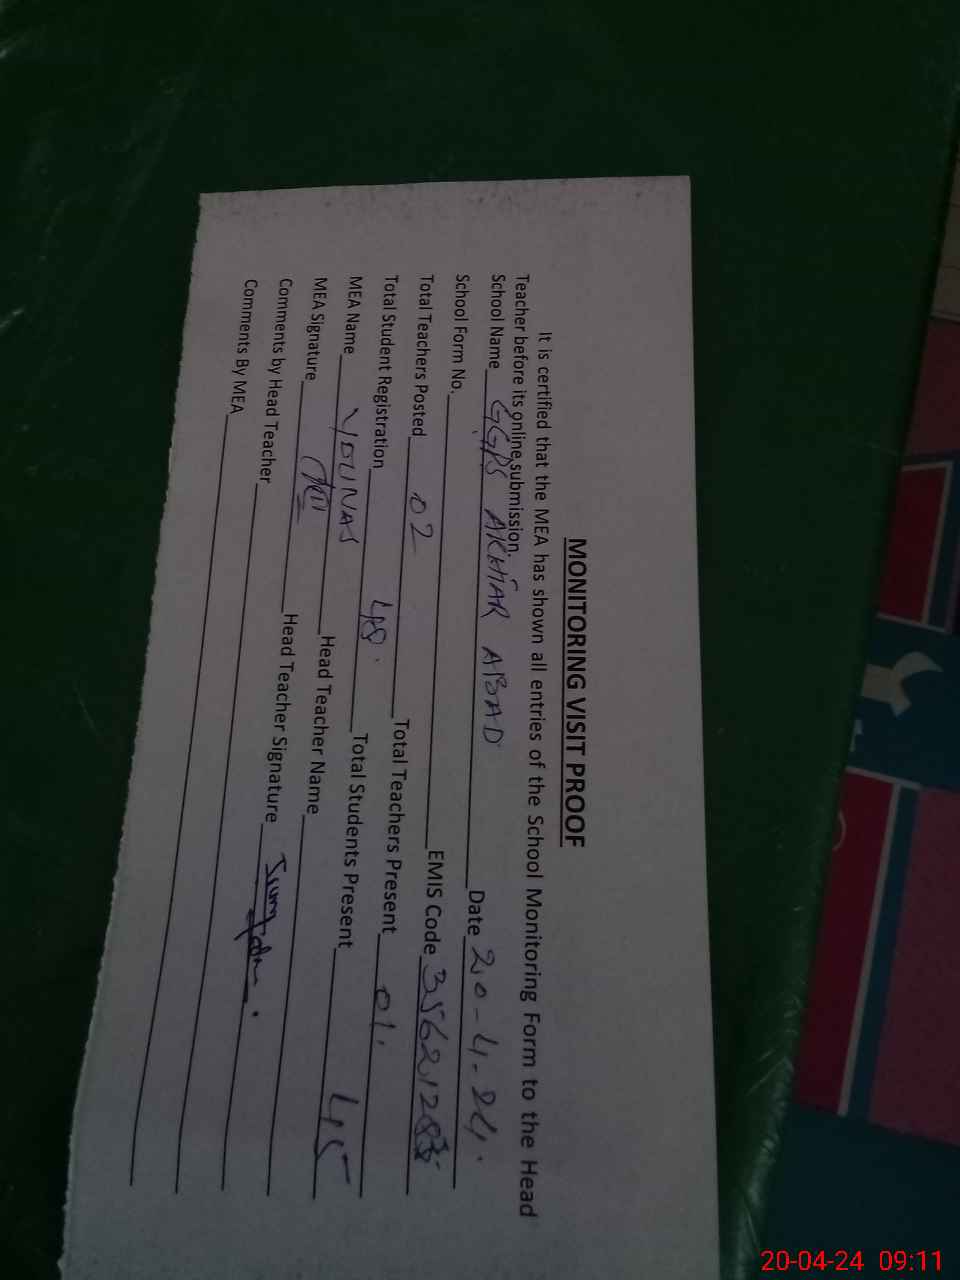 MONITORING VISIT PROOF
It is certified that the MEA has shown all entries of the School Monitoring Form to the Head
Teacher before its online submission.
School Name GGPS AKHTAR ABAD Date 20-4-24.
School Form No. EMIS Code
Total Teachers Posted 02 Total Teachers Present 01.
Total Student Registration 48. Total Students Present 45
MEA Name YOUNAS Head Teacher Name
MEA Signature Head Teacher Signature
Comments by Head Teacher
Comments By MEA
20-04-24 09:11